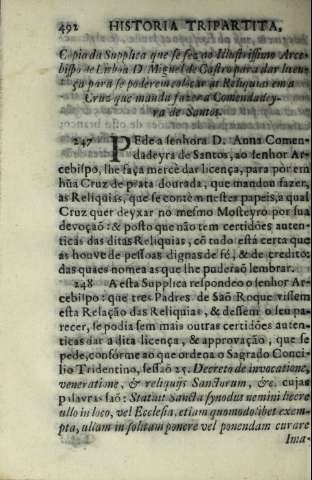 492 HISTORIA TRIPARTITA.
Copia da Supplica que se fez ao Illustrissimo Arce-
bispo de Lisboa D. Miguel de Castro para dar licen-
ça para se poderem colocar as Reliquias em a
Cruz que mandu fazer a Comendadey-
ra de Santos.
247 PEde a senhora D. Anna Comen-
dadeyra de Santos, ao senhor Ar-
cebispo, lhe faça mercè dar licença, para pòr em
hũa Cruz de prata dourada, que mandou fazer,
as Reliquias, que se contèm nestes papeis, a qual
Cruz quer deyxar no mesmo Mosteyro por sua
devoçaõ: & posto que não tem certidões auten-
ticas das ditas Reliquias, cõ tudo está certa que
as houve de pessoas dignas de fé, & de credito:
das quaes nomea as que lhe puderaõ lembrar.
248 A esta Supplica respondeo o senhor Ar-
cebispo: que tres Padres de Saõ Roque vissem
esta Relação das Reliquias, & dessem o seu pa-
recer, se podia sem mais outras certidões auten-
ticas dar a dita licença, & approvação, que se
pede, confórme ao que ordena o Sagrado Conci-
lio Tridentino, sessaõ 25. Decreto de invocatione,
veneratione, & reliquijs Sanctorum, &c. cujas
palavras saõ: Statuit Sancta synodus nemini licere
ullo in loco, vel Ecclesia, etiam quomodolibet exem-
pta, ullam insolitam ponere vel ponendam curare
Ima-